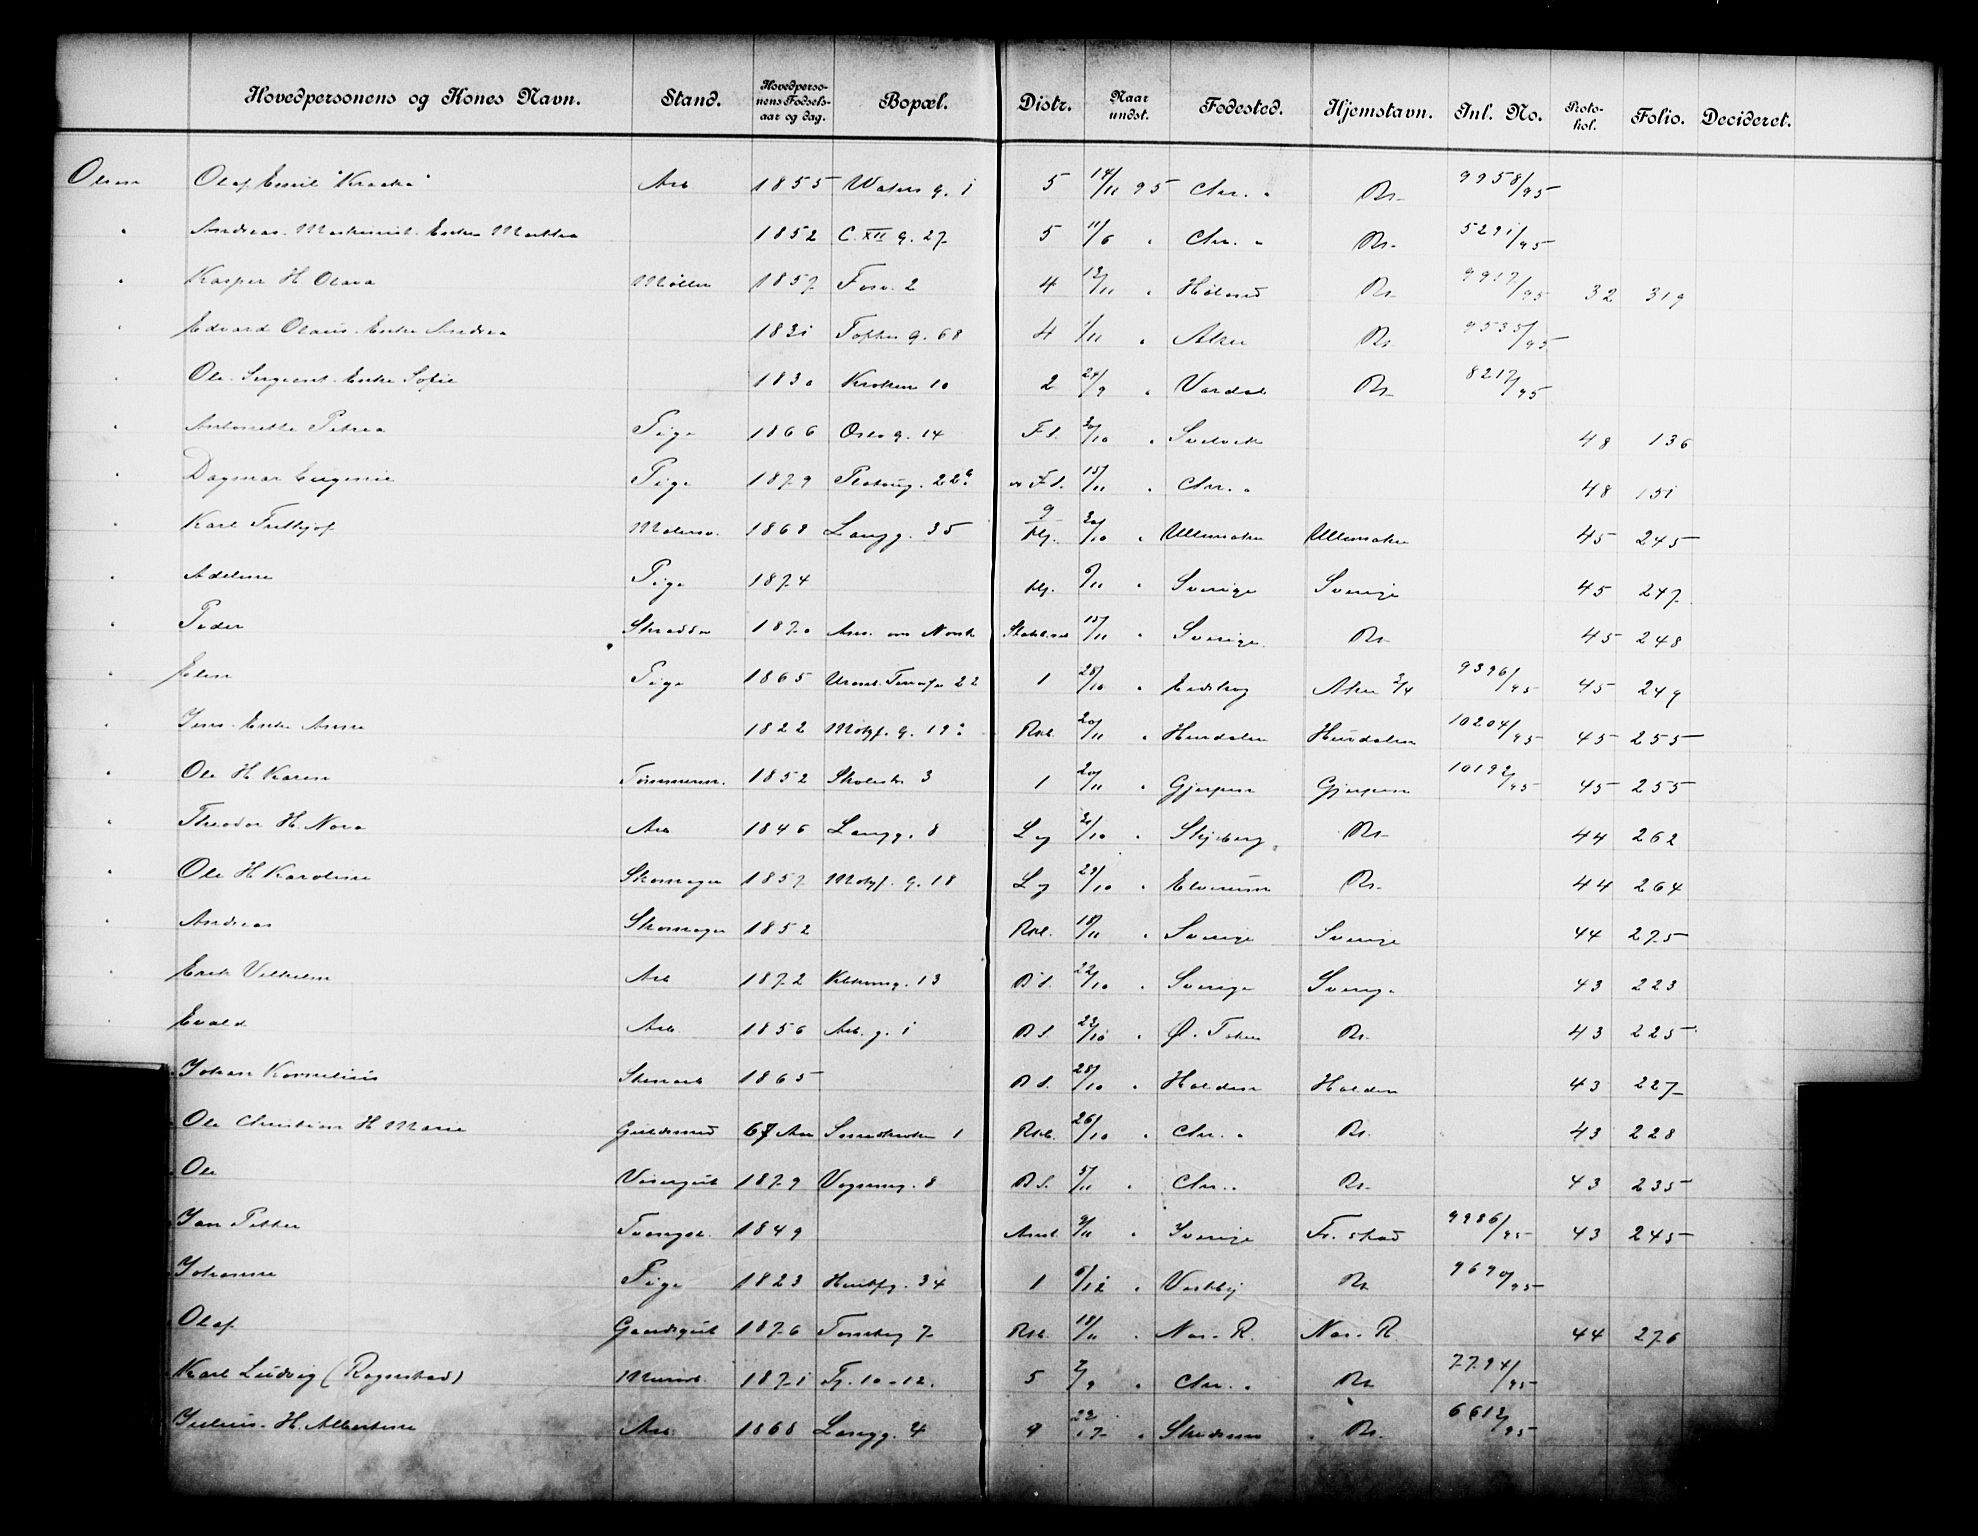 Hovedpersonens og Kones Navn. Stand. Hovedpersonens Fødselsaar og dag. Bopæl. Distr. Naar undst. Fødested. Hjemstavn. Inl. No. Protokol. Folio. Decideret.
Olsen Olaf Emil "Kraaka" Arb 1855 Waters g. 1 5 14/11 95 Chr. " Kr. 9958/95
" Andreas. Maskinist. Enke Martha 1852 C. XII g. 27 5 11/6 " Chr. " Kr. 5291/95
" Kasper H. Olava Møller 1857 Fosv. 2 4 12/11 " Høland Kr. 9917/95 32 319
" Edvard Olaus. Enke Andrea 1831 Toftes g. 68 4 1/11 " Aker Kr. 9535/95
" Ole. Sergeant. Enke Sofie 1830 Kroken 10 2 24/9 " Vardal Kr. 8217/95
" Antonette Petrea Pige 1866 Oslo g. 14 F.d. 30/10 " Svelvik 48 136
" Dagmar Eugenie Pige 1879 22 F.d. 15/11 " Chr. " 48 151
" Karl Frithjof Malersv. 1868 Langg. 35 9 Hj. 30/10 " Ullensaker Ullensaker 45 245
" Adeline Pige 1874 Hj. 6/11 " Sverige Sverige 45 247
" Peder Skrædder 1870 15/11 " Sverige Kr. 45 248
" Elen Pige 1865 22 1 28/10 " Eidskog Aker 2/4 9396/95 45 249
" Jens. Enke Anne 1822 Motzf. g. 19 20/11 " Hurdalen Hurdalen 10204/95 45 255
" Ole H. Karen Tømmerm. 1852 Skolestr. 3 1 20/11 " Gjerpen Gjerpen 10192/95 45 255
" Theodor H. Nora Arb 1846 Langg. 8 Lg 31/10 " Skjeberg Kr. 44 262
" Ole H. Karoline Skomager 1857 Motzf. g. 18 Lg 29/10 " Elverum Kr. 44 264
" Andreas Skomager 1852 18/11 " Sverige Sverige 44 275
" Erik Vilhelm Arb 1872 13 22/10 " Sverige Sverige 43 223
" Evald Arb 1856 Arb. g. 1 23/10 " Ø. Toten Kr. 43 225
Johan Kornelius Stenarb 1865 28/10 " Holden Holden 43 227
Ole Christian H. Marie Guldsmed 67 Aar 1 26/10 " Chr. " Kr. 43 228
Ole Visergut 1879 Vognmg. 8 5/11 " Chr. " Kr. 43 235
Jan Petter 1849 9/11 " Sverige Fr. stad 9986/95 43 245
Johanne Pige 1823 34 1 6/12 " Vestby Kr. 9690/95
Olaf Gaardsgut 1876 Tomteg 7 18/11 " Nes. R. Nes. R. 44 276
Karl Ludvig (Rognstad) 1871 10-12. 5 7/9 " Chr. " Kr. 7794/95
Julius. H. Albertine Arb 1868 Langg. 4 9 22/7 " Skedsmo Kr. 6612/95